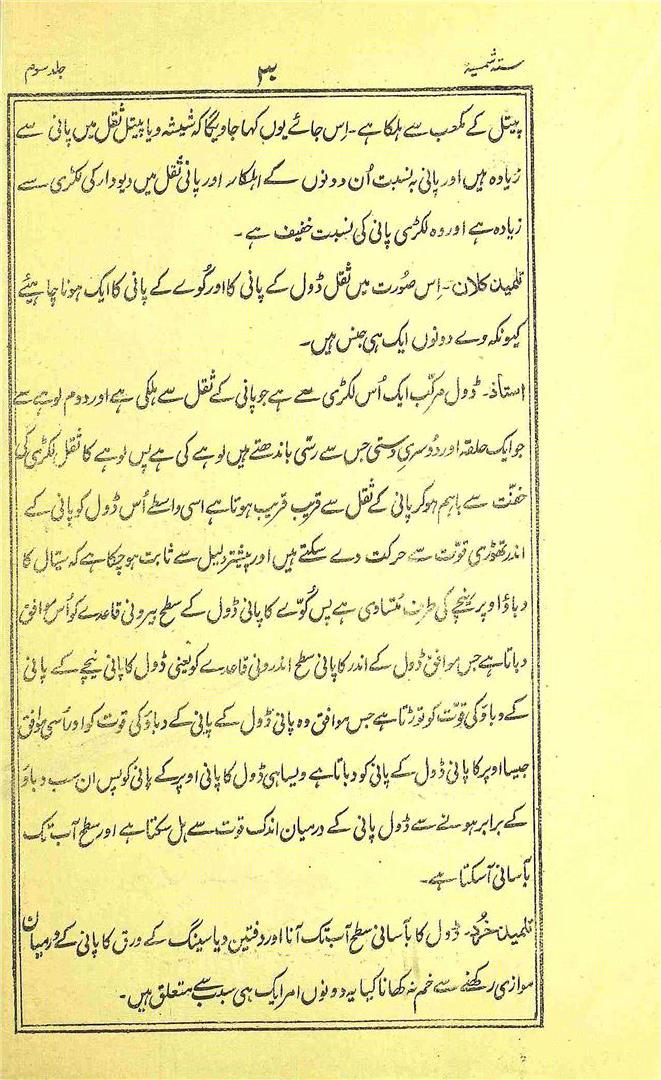 ستہ شمسیہ ۳۰ جلد سوم
پیتل کے مکعب سے ہلکا ہے۔ اِس جائے یوں کہا جاویگا کہ شیشہ و یا پیتل ثقل میں پانی سے
زیادہ ہیں اور پانی بہ نسبت اُن دونوں کے اہلکا اور پانی ثقل میں دیودار کی لکڑی سے
زیادہ ہے اور وہ لکڑی پانی کی نسبت خفیف ہے۔
تلمیذ کلان۔ اِس صورت میں ثقل ڈول کے پانی کا اور کُوے کے پانی کا ایک ہونا چاہیئے
کیونکہ وے دونوں ایک ہی جنس ہیں۔
استاذ۔ ڈول مرکّب ایک اُس لکڑی سے ہے جو پانی کے ثقل سے ہلکی ہے اور دوم لوہے سے
جو ایک حلقہ اور دُوسری دستی جس سے رسّی باندھتے ہیں لوہے کی ہے پس لوہے کا ثقل لکڑی کی
خفّت سے باہم ہو کر پانی کے ثقل سے قریب قریب ہوتا ہے اسی واسطے اُس ڈول کو پانی کے
اندر تھوڑی قوّت سے حرکت دے سکتے ہیں اور پیشتر دلیل سے ثابت ہو چکا ہے کہ سیّال کا
دباؤ اوپر نیچے کی طرف مُتساوی ہے پس کُوّے کا پانی ڈول کے سطح بیرونی قاعدے کو اُس موافق
دباتا ہے جس موافق ڈول کے اندر کا پانی سطح اندرونی قاعدے کو یعنی ڈول کا پانی نیچے کے پانی
کے دباؤ کی قوّت کو توڑتا ہے جس موافق وہ پانی ڈول کے پانی کے دباؤ کی قوت کو اور اُسی موافق
جیسا اوپر کا پانی ڈول کے پانی کو دباتا ہے ویسا ہی ڈول کا پانی اوپر کے پانی کو پس ان سب دباؤ
کے برابر ہونے سے ڈول پانی کے درمیان اندک قوت سے ہل سکتا ہے اور سطح آب تک
بآسانی آ سکتا ہے۔
تلمیذ خُرد۔ ڈول کا بآسانی سطح آب تک آنا اور دفتین و یا سینگ کے ورق کا پانی کے درمیان
موازی رکھنے سے خم نہ کھانا کیا یہ دونوں امر ایک ہی سبب سے متعلق ہیں۔